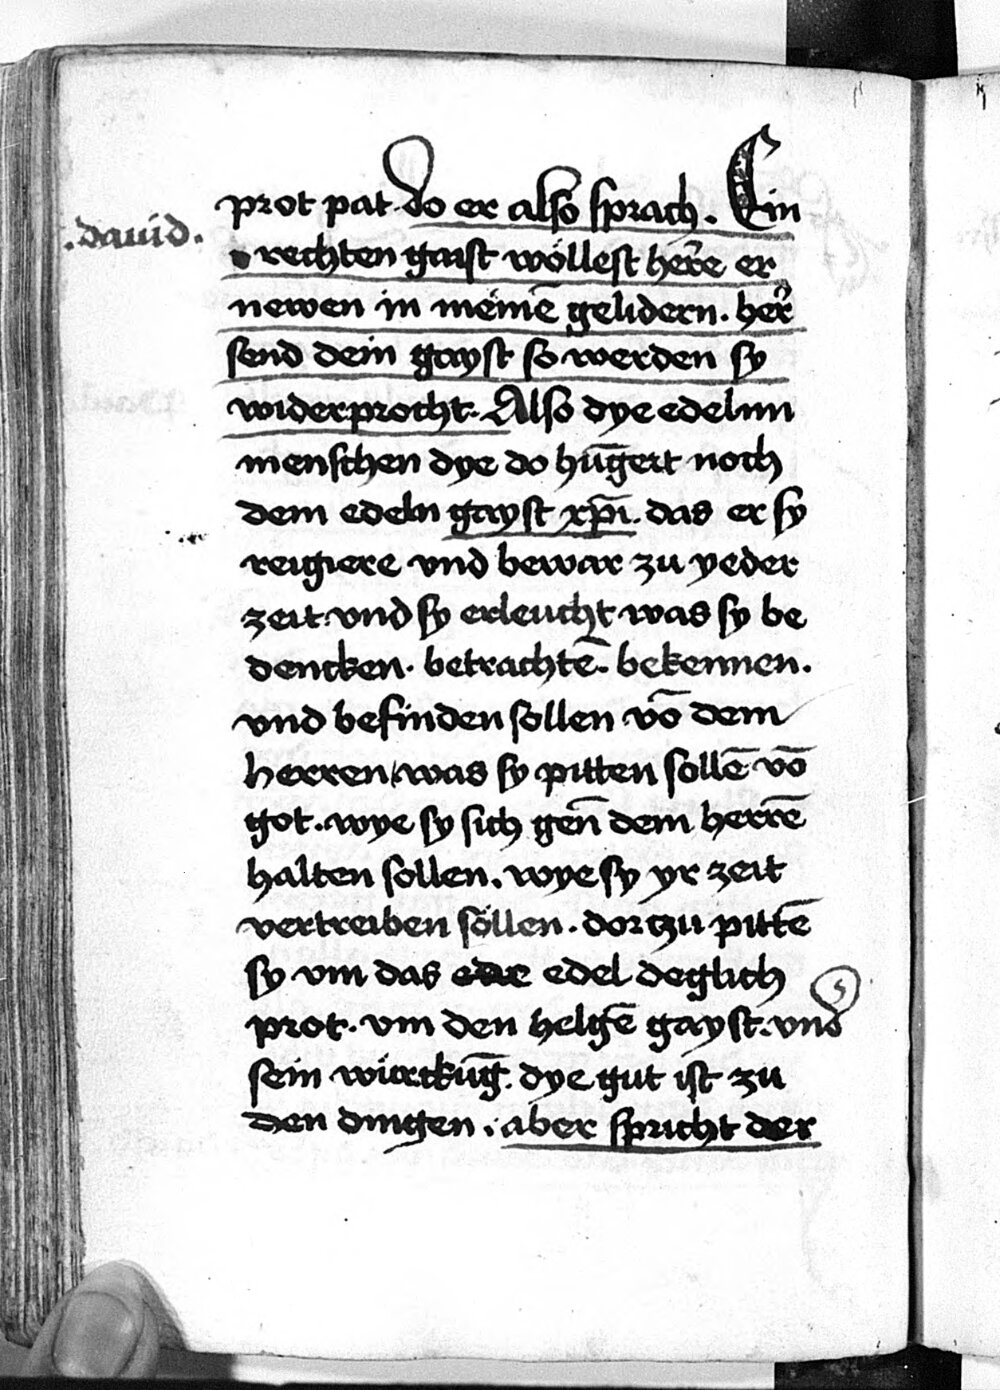 prot pat. do er also sprach. Ein
.dauid.
rechten gaist wöllest herre er
newen in meine̅ gelidern. her
send dein gayst so werden sy
widerprocht. Also dye edelnn
menschen dye do hu̅gert noch
dem edeln gayst xp̅i. das er sy
reigiere vnd bewar zu yeder
zeit vnd sy erleucht was sy be
dencken. betrachte̅. bekennen.
vnd befinden sollen vo̅ dem
herren, was sy pitten solle̅ vo̅
got. wye sy sich gen̅ dem herre̅
halten sollen. wye sy yr zeit
vertreiben söllen. dortzu pitte̅
sy vm das edel deglich
prot. vm den helge̅ gayst. vnd
sein würcku̅g. dye gut ist zu
den dingen. aber spricht der